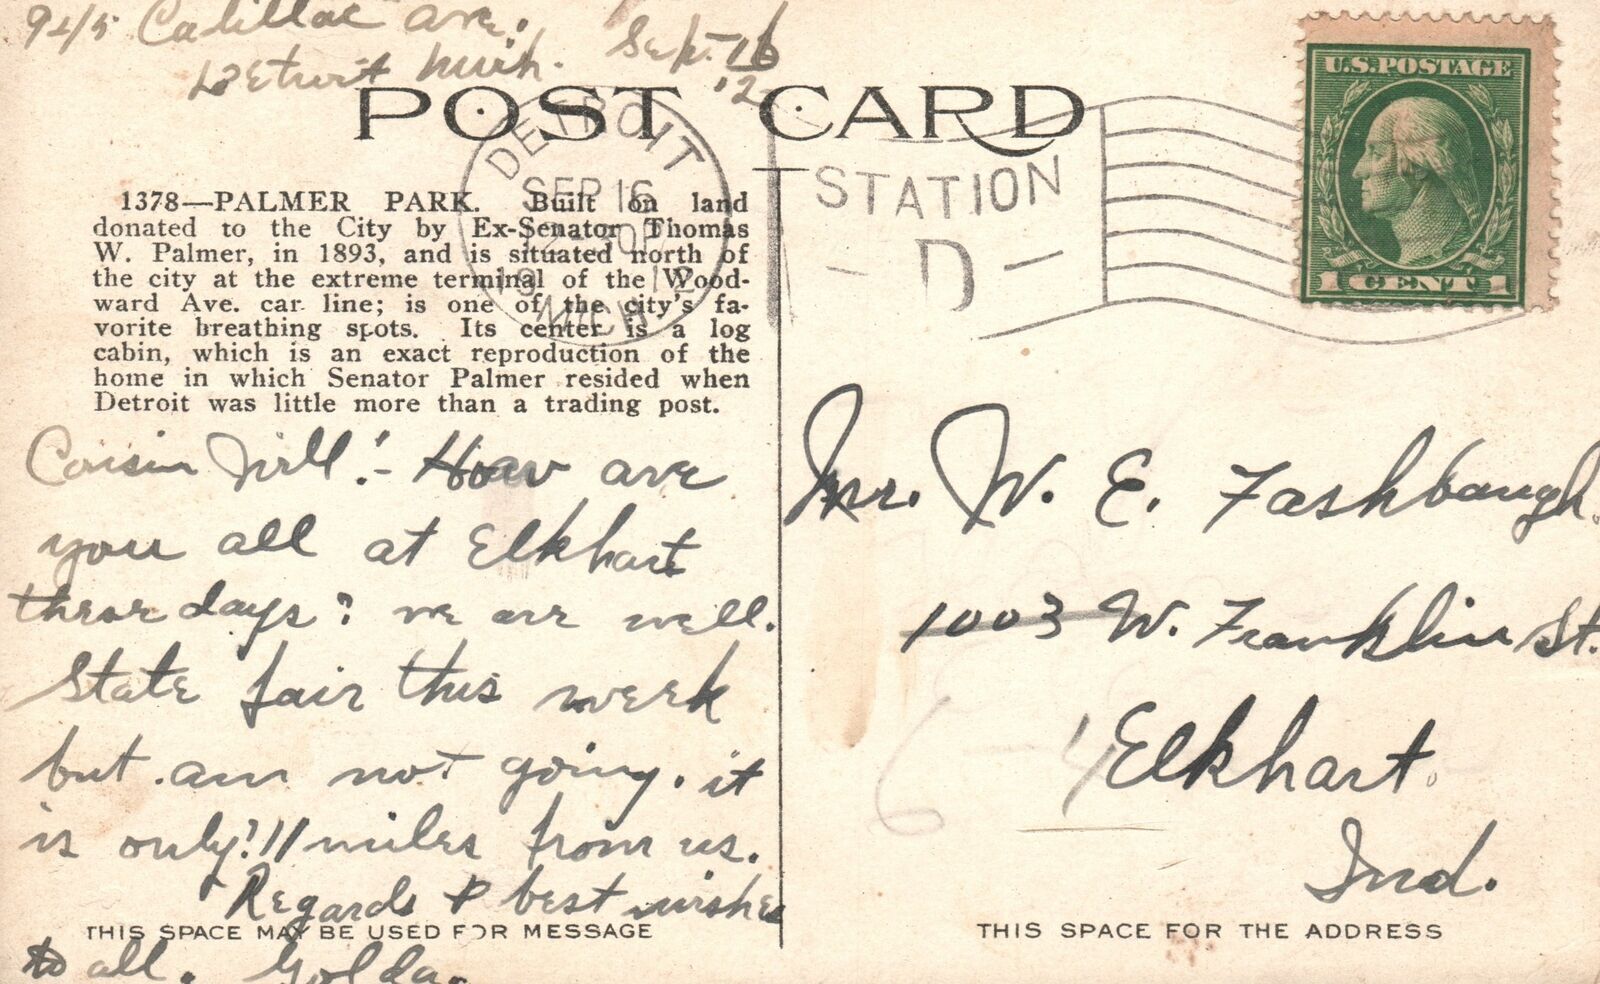 9215 Cadillac Ave.
Detroit Mich. Sept. 16
'12
POST CARD
DETROIT
SEP 16
12-30P
1912
MICH
STATION
D
U.S.POSTAGE
1 CENT 1
1378—PALMER PARK. Built on land
donated to the City by Ex-Senator Thomas
W. Palmer, in 1893, and is situated north of
the city at the extreme terminal of the Wood-
ward Ave. car line; is one of the city's fa-
vorite breathing spots. Its center is a log
cabin, which is an exact reproduction of the
home in which Senator Palmer resided when
Detroit was little more than a trading post.
Cousin Will! - How are
you all at Elkhart
these days? we are well.
State fair this week
but am not going. it
is only 11 miles from us.
Regards & best wishes
to all. Golda.
THIS SPACE MAY BE USED FOR MESSAGE
Mr. W. E. Fashbaugh.
1003 W. Franklin St.
Elkhart.
Ind.
6 - 4
THIS SPACE FOR THE ADDRESS